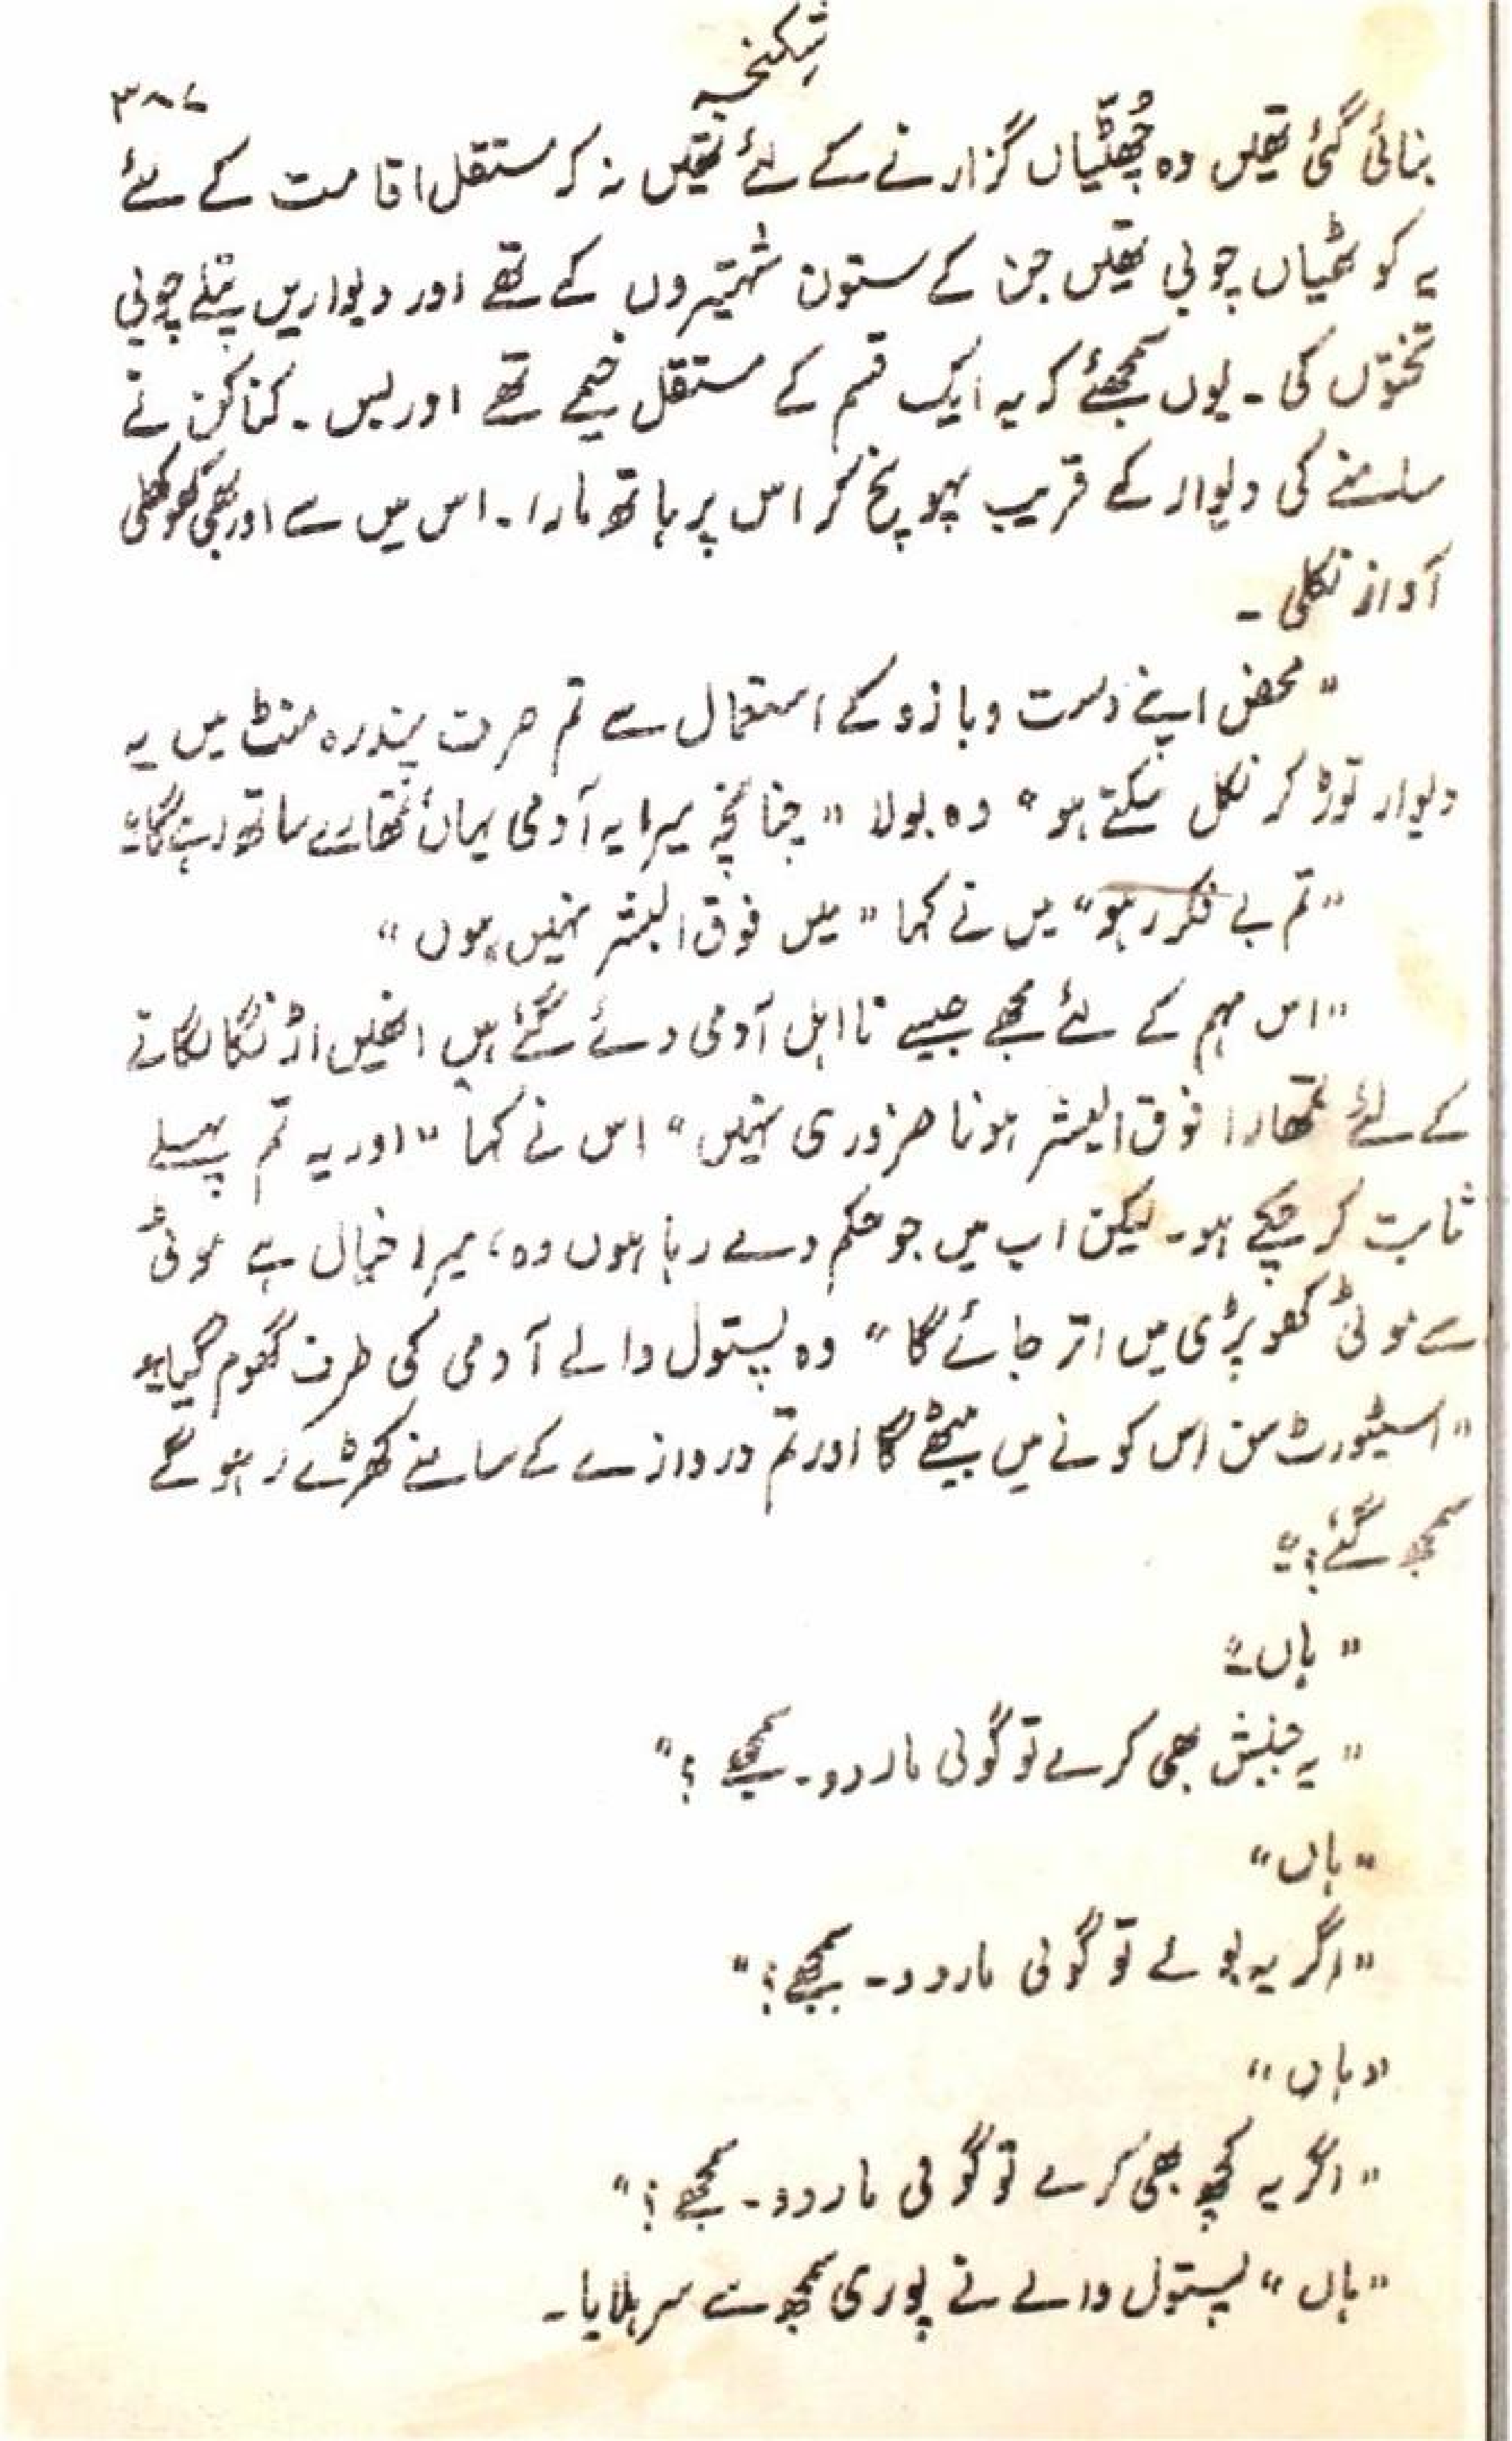 شکنجہ
۳۸۷
بنائی گئی تھیں وہ چُھٹیاں گزارنے کے لئے تھیں نہ کر مستقل اقامت کے لئے
یہ کوٹھیاں چوبی تھیں جن کے ستون شہتیروں کے تھے اور دیواریں پتلے چوبی
تختوں کی ۔ یوں سمجھئے کہ یہ ایک قسم کے مستقل خیمے تھے اور بس ۔ کناکن نے
سامنے کی دیوار کے قریب پہونچ کر اس پر ہاتھ مارا ۔ اس میں سے اور بھی کھوکھلی
آواز نکلی ۔
" محض اپنے دست و بازو کے استعمال سے تم صرف پندرہ منٹ میں یہ
دیوار توڑ کر نکل سکتے ہو " وہ بولا " چنانچہ میرا یہ آدمی یہاں تمھارے ساتھ رہے گا "
" تم بے فکر رہو " میں نے کہا " میں فوق البشر نہیں ہوں "
" اس مہم کے لئے مجھے جیسے نا اہل آدمی دئے گئے ہیں انھیں اڑنگا لگانے
کے لئے تمھارا فوق البشر ہونا ضروری نہیں " اس نے کہا " اور یہ تم پہلے
ثابت کر چکے ہو ۔ لیکن اب میں جو حکم دے رہا ہوں وہ ، میرا خیال ہے موٹی
سے موٹی کھوپڑی میں اتر جائے گا " وہ پستول والے آدمی کی طرف گھوم گیا
" اسٹیورٹ سن اس کونے میں بیٹھے گا اور تم دروازے کے سامنے کھڑے رہو گے
سمجھ گئے ؟ "
" ہاں "
" یہ جنبش بھی کرے تو گولی مار دو ۔ سمجھے ؟ "
" ہاں "
" اگر یہ بولے تو گولی مار دو ۔ سمجھے ؟ "
" ہاں "
" اگر یہ کچھ بھی کرے تو گولی مار دو ۔ سمجھے ؟ "
" ہاں " پستول والے نے پوری سمجھ سے سر ہلایا ۔